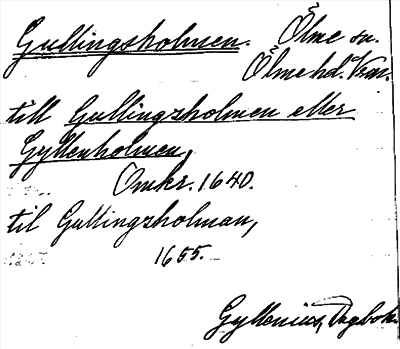 Gullingsholmen. Ölme sn.
Ölme hd. Vrml.
till Gullingzholmen eller
Gyllenholmen,
Omkr. 1640.
til Gullingzholman,
1655.
Gyllenius, Dagbok